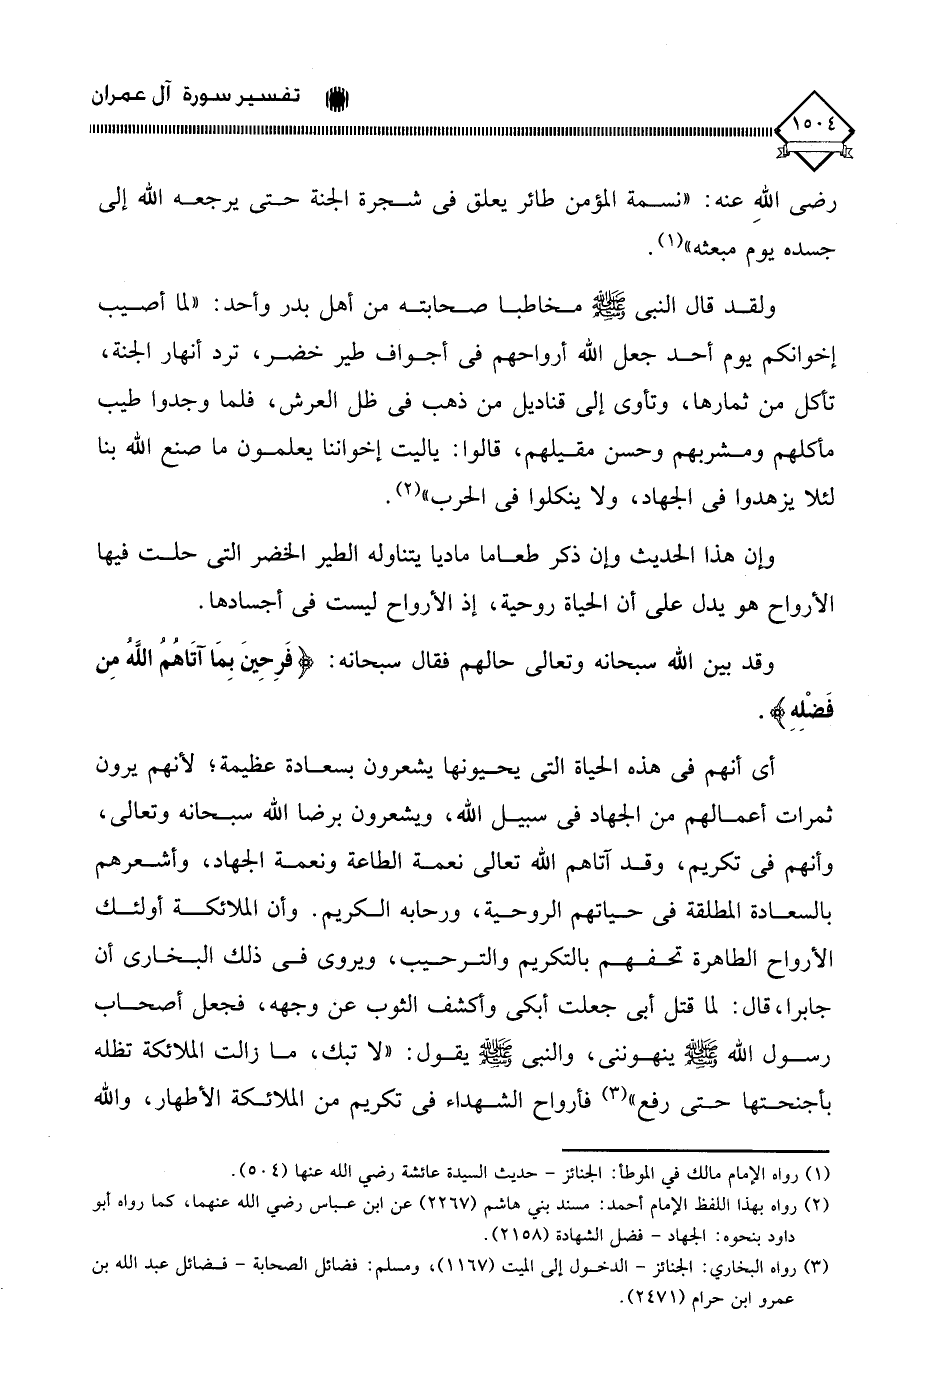 تفسير سورة آل عمران
١٥٠٤
رضى الله عنه: «نسمة المؤمن طائر يعلق فى شجرة الجنة حتى يرجعه الله إلى
جسده يوم مبعثه»(١).
ولقد قال النبى ﷺ مخاطبا صحابته من أهل بدر وأحد: «لما أصيب
إخوانكم يوم أحد جعل الله أرواحهم فى أجواف طير خضر، ترد أنهار الجنة،
تأكل من ثمارها، وتأوى إلى قناديل من ذهب فى ظل العرش، فلما وجدوا طيب
مأكلهم ومشربهم وحسن مقيلهم، قالوا: ياليت إخواننا يعلمون ما صنع الله بنا
لئلا يزهدوا فى الجهاد، ولا ينكلوا فى الحرب»(٢).
وإن هذا الحديث وإن ذكر طعاما ماديا يتناوله الطير الخضر التى حلت فيها
الأرواح هو يدل على أن الحياة روحية، إذ الأرواح ليست فى أجسادها.
وقد بين الله سبحانه وتعالى حالهم فقال سبحانه: ﴿فَرِحِينَ بِمَا آتَاهُمُ اللَّهُ مِن
فَضْلِهِ﴾.
أى أنهم فى هذه الحياة التى يحيونها يشعرون بسعادة عظيمة؛ لأنهم يرون
ثمرات أعمالهم من الجهاد فى سبيل الله، ويشعرون برضا الله سبحانه وتعالى،
وأنهم فى تكريم، وقد آتاهم الله تعالى نعمة الطاعة ونعمة الجهاد، وأشعرهم
بالسعادة المطلقة فى حياتهم الروحية، ورحابه الكريم. وأن الملائكة أولئك
الأرواح الطاهرة تحفهم بالتكريم والترحيب، ويروى فى ذلك البخارى أن
جابرا، قال: لما قتل أبى جعلت أبكى وأكشف الثوب عن وجهه، فجعل أصحاب
رسول الله ﷺ ينهوننى، والنبى ﷺ يقول: «لا تبك، ما زالت الملائكة تظله
بأجنحتها حتى رفع»(٣) فأرواح الشهداء فى تكريم من الملائكة الأطهار، والله
(١) رواه الإمام مالك في الموطأ: الجنائز - حديث السيدة عائشة رضي الله عنها (٥٠٤).
(٢) رواه بهذا اللفظ الإمام أحمد: مسند بني هاشم (٢٢٦٧) عن ابن عباس رضي الله عنهما، كما رواه أبو
داود بنحوه: الجهاد - فضل الشهادة (٢١٥٨).
(٣) رواه البخاري: الجنائز - الدخول إلى الميت (١١٦٧)، ومسلم: فضائل الصحابة - فضائل عبد الله بن
عمرو ابن حرام (٢٤٧١).